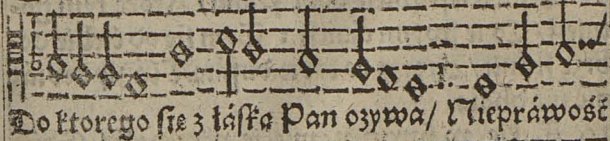 Do ktorego ſię z łáſką Pan ozywa/ Niepráwość